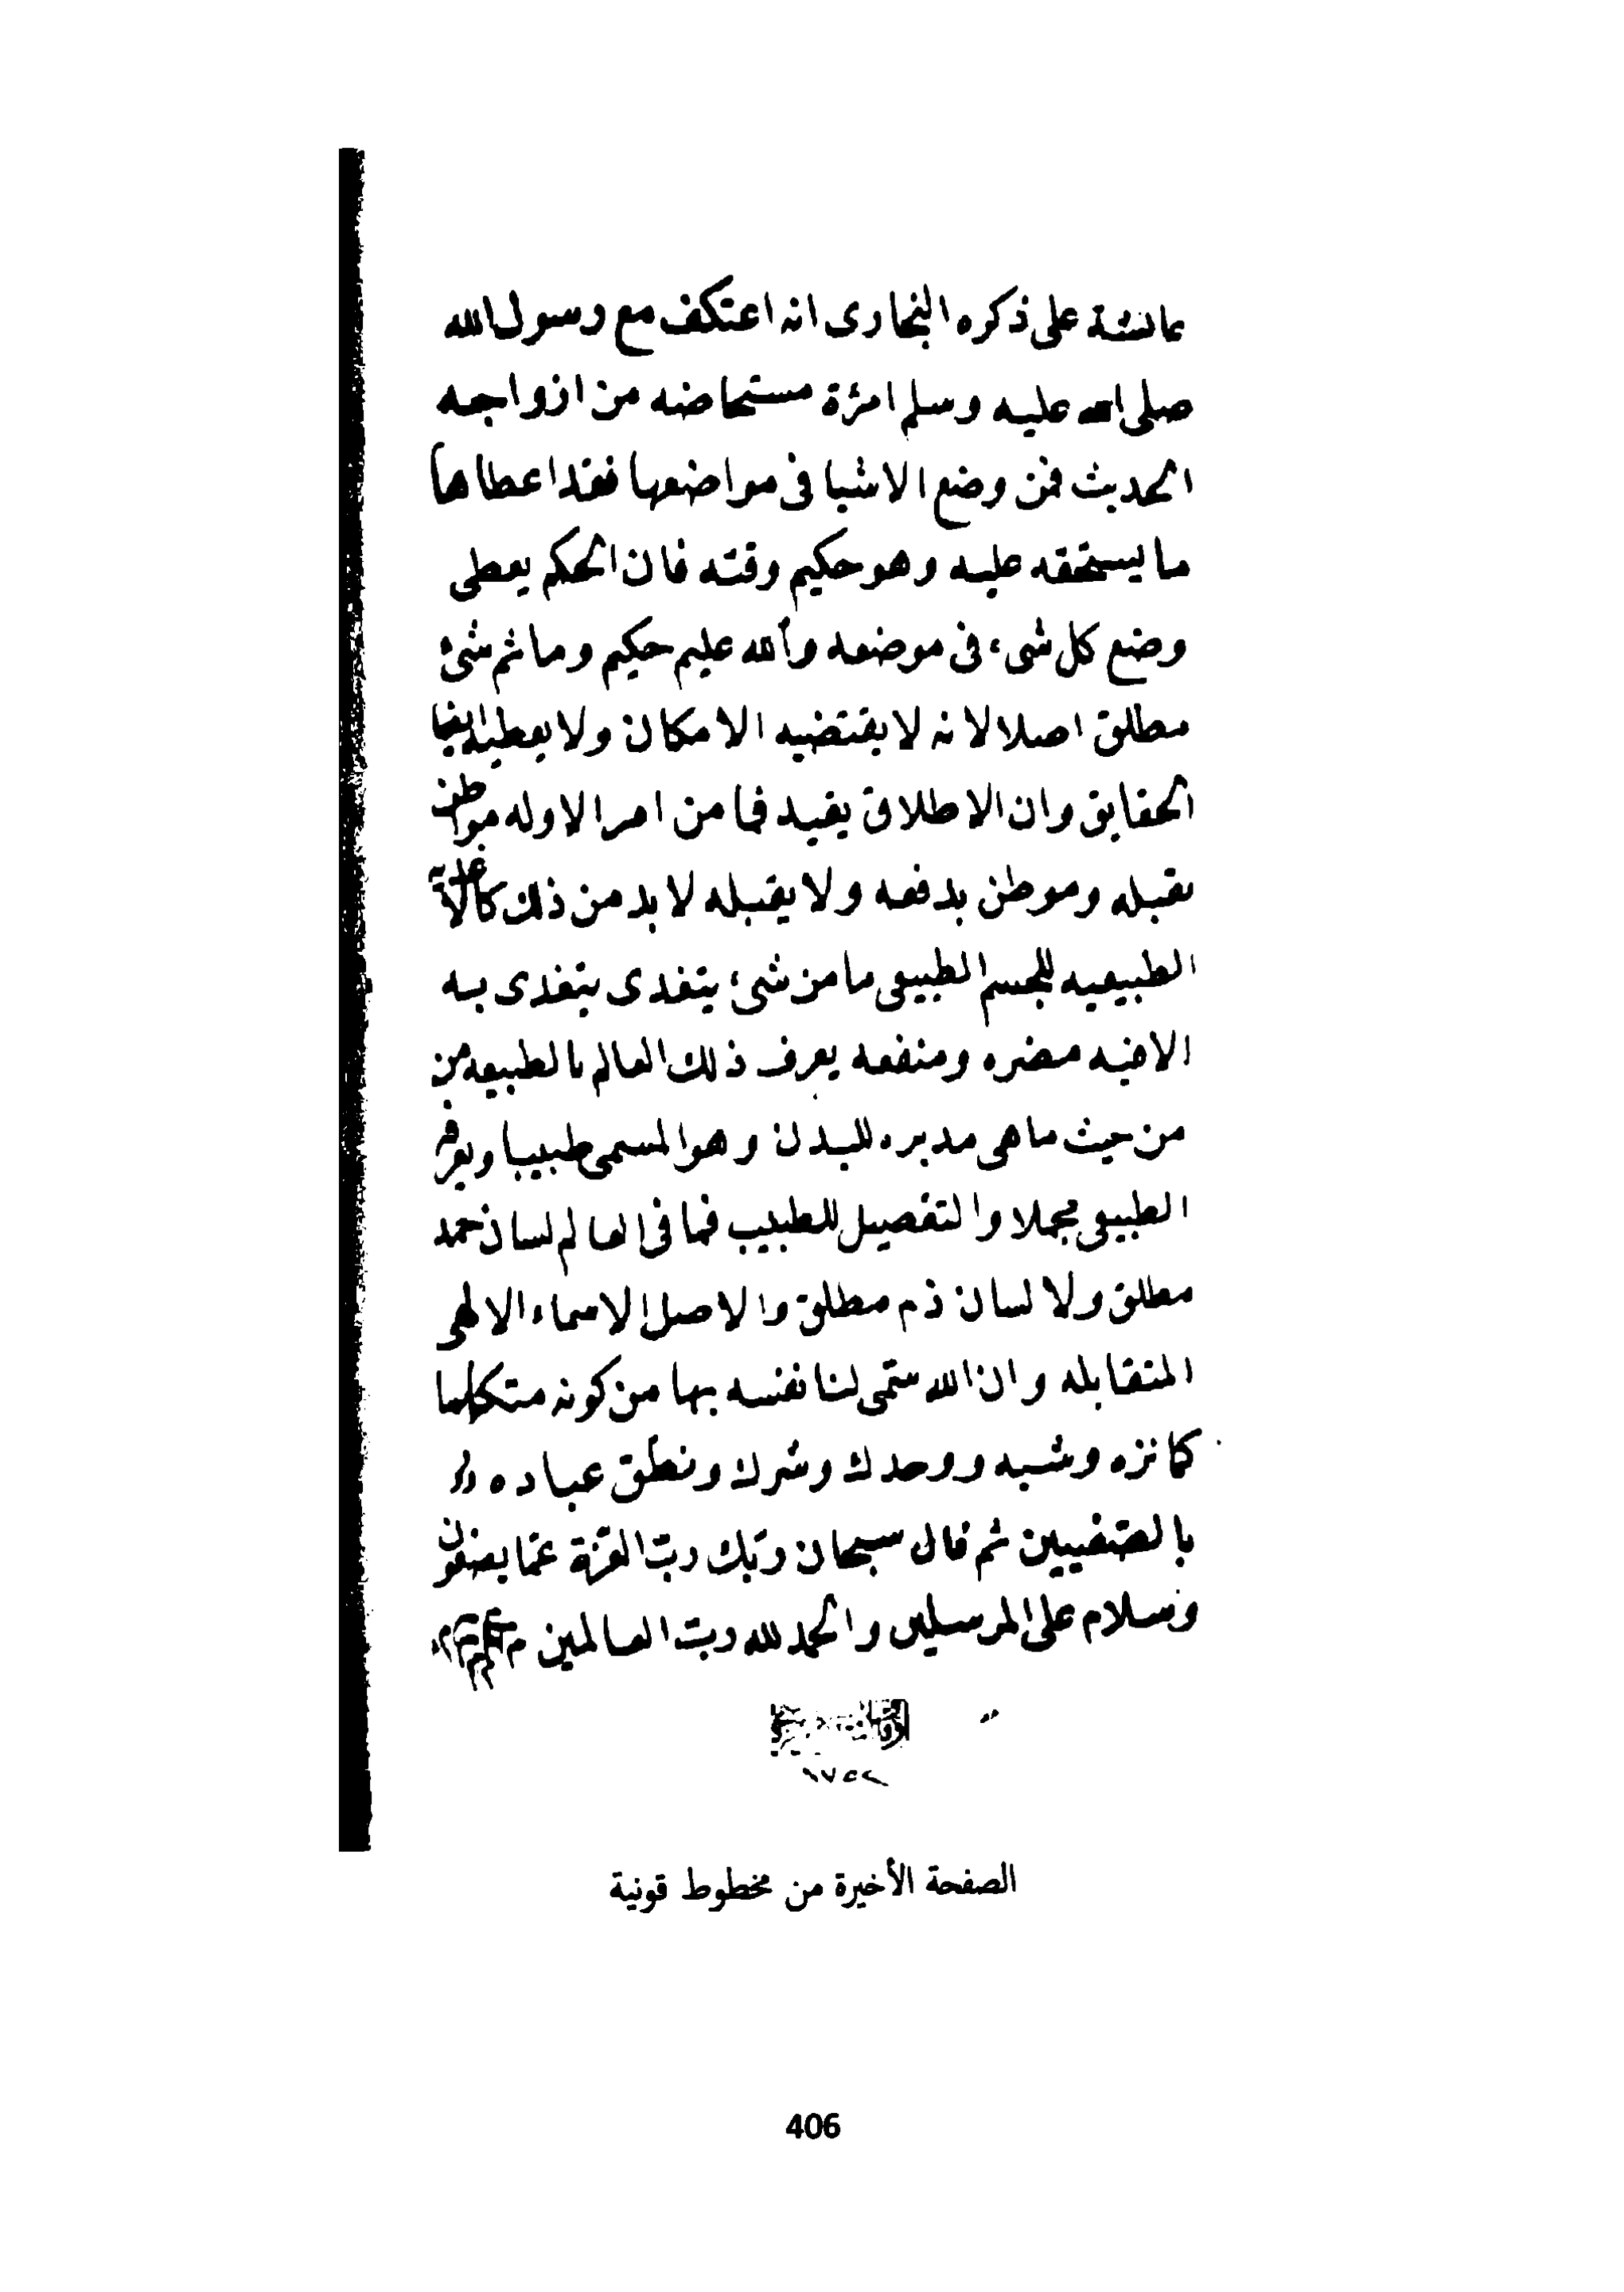 عائشة على ذكره البخارى انه اعتكف مع رسول الله
صلى الله عليه وسلم امرة مستحاضه من ازواجه
الحديث فمن وضع الاشيا فى مواضعها فقد اعطاها
ما يستحقه عليه وهو حكيم وقته فان الحكم يعطى
وضع كل شىء فى موضعه والله عليم حكيم وما ثم شئ
مطلق اصلا لانه لا يقتضيه الامكان ولا يعطيه ايضا
الحقايق وان الاطلاق يقيد فما من امر الا وله موطن
يقبله وموطن يدفعه ولا يقبله لا بد من ذلك كالاغذية
الطبيعيه للجسم الطبيعى ما من شىء يتغدى يتغدى به
الا فيه مضره ومنفعه يعرف ذلك العالم بالطبيعه من
من حيث ما هى مدبره للبدن وهو المسمى طبيبا ويعرفه
الطبيعى مجملا والتفصيل للطبيب فما فى العالم لسان حمد
مطلق ولا لسان ذم مطلق والاصل الاسماء الالهى
المتقابله وان الله سمّى لنا نفسه بها من كونه متكلما
كما نزه وشبه ووحد وشرك ونطق عباده
بالصفتين ثم قال سبحان ربّك ربّ العزّة عمّا يصفون
وسلام على المرسلين والحمد لله ربّ العالمين
١٧٥٢
الصفحة الأخيرة من مخطوط قونية
406